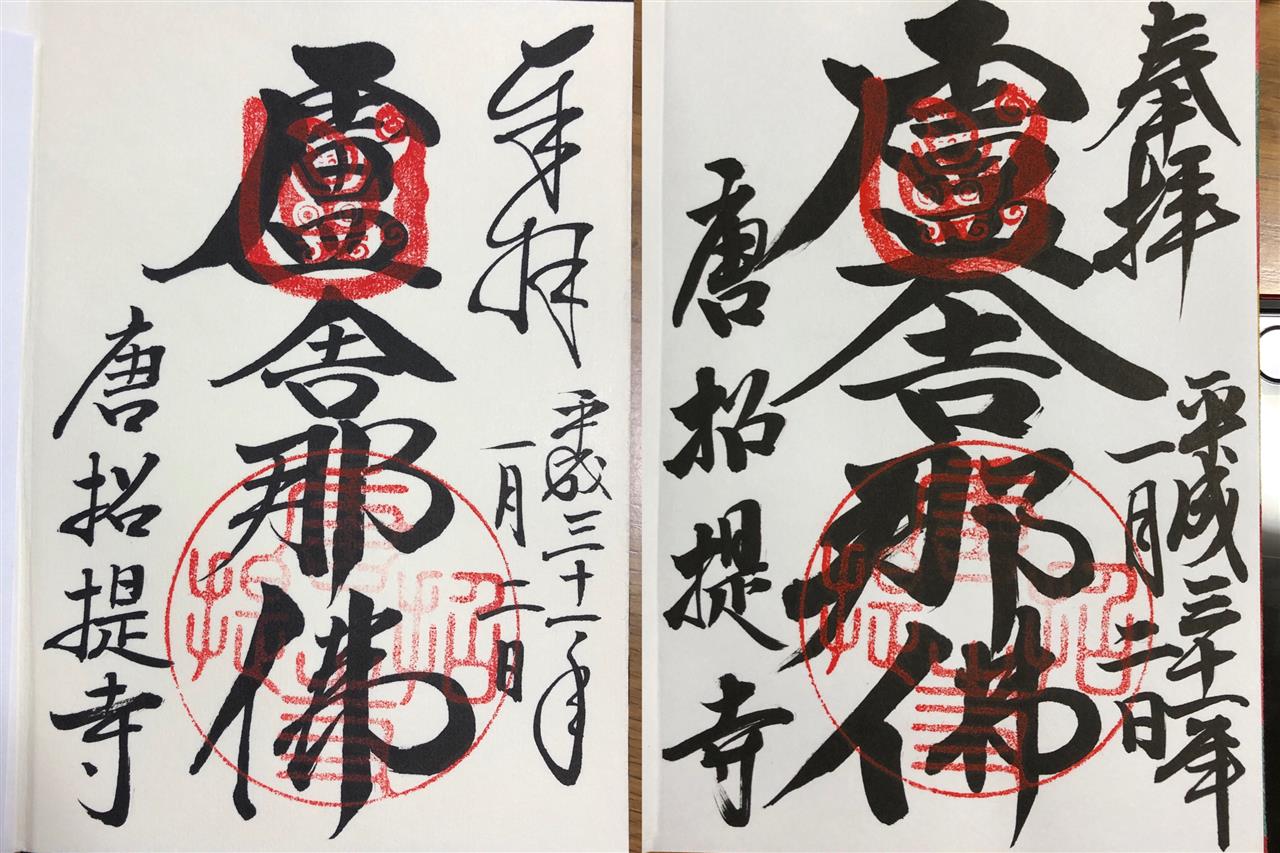 奉拝
平成三十一年
一月二日
盧舎那佛
唐招提寺
奉拝
平成三十一年
一月二日
盧舎那佛
唐招提寺